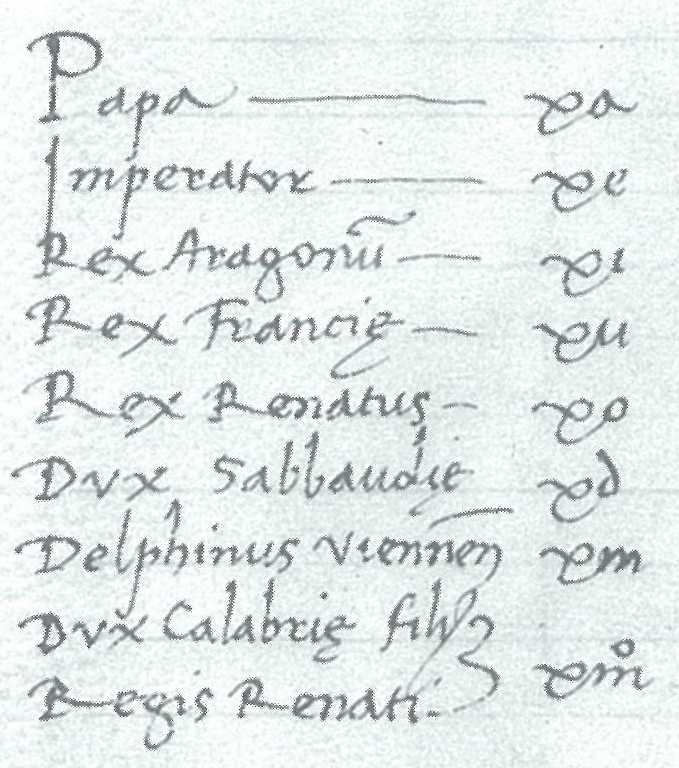 Papa — xa
Imperator — xe
Rex Aragonū — xi
Rex Francię — xu
Rex Renatus — xo
Dvx Sabbaudie xd
Delphinus Viennen̄ xm
Dvx Calabrię filiꝫ
Regis Renati. xm̊